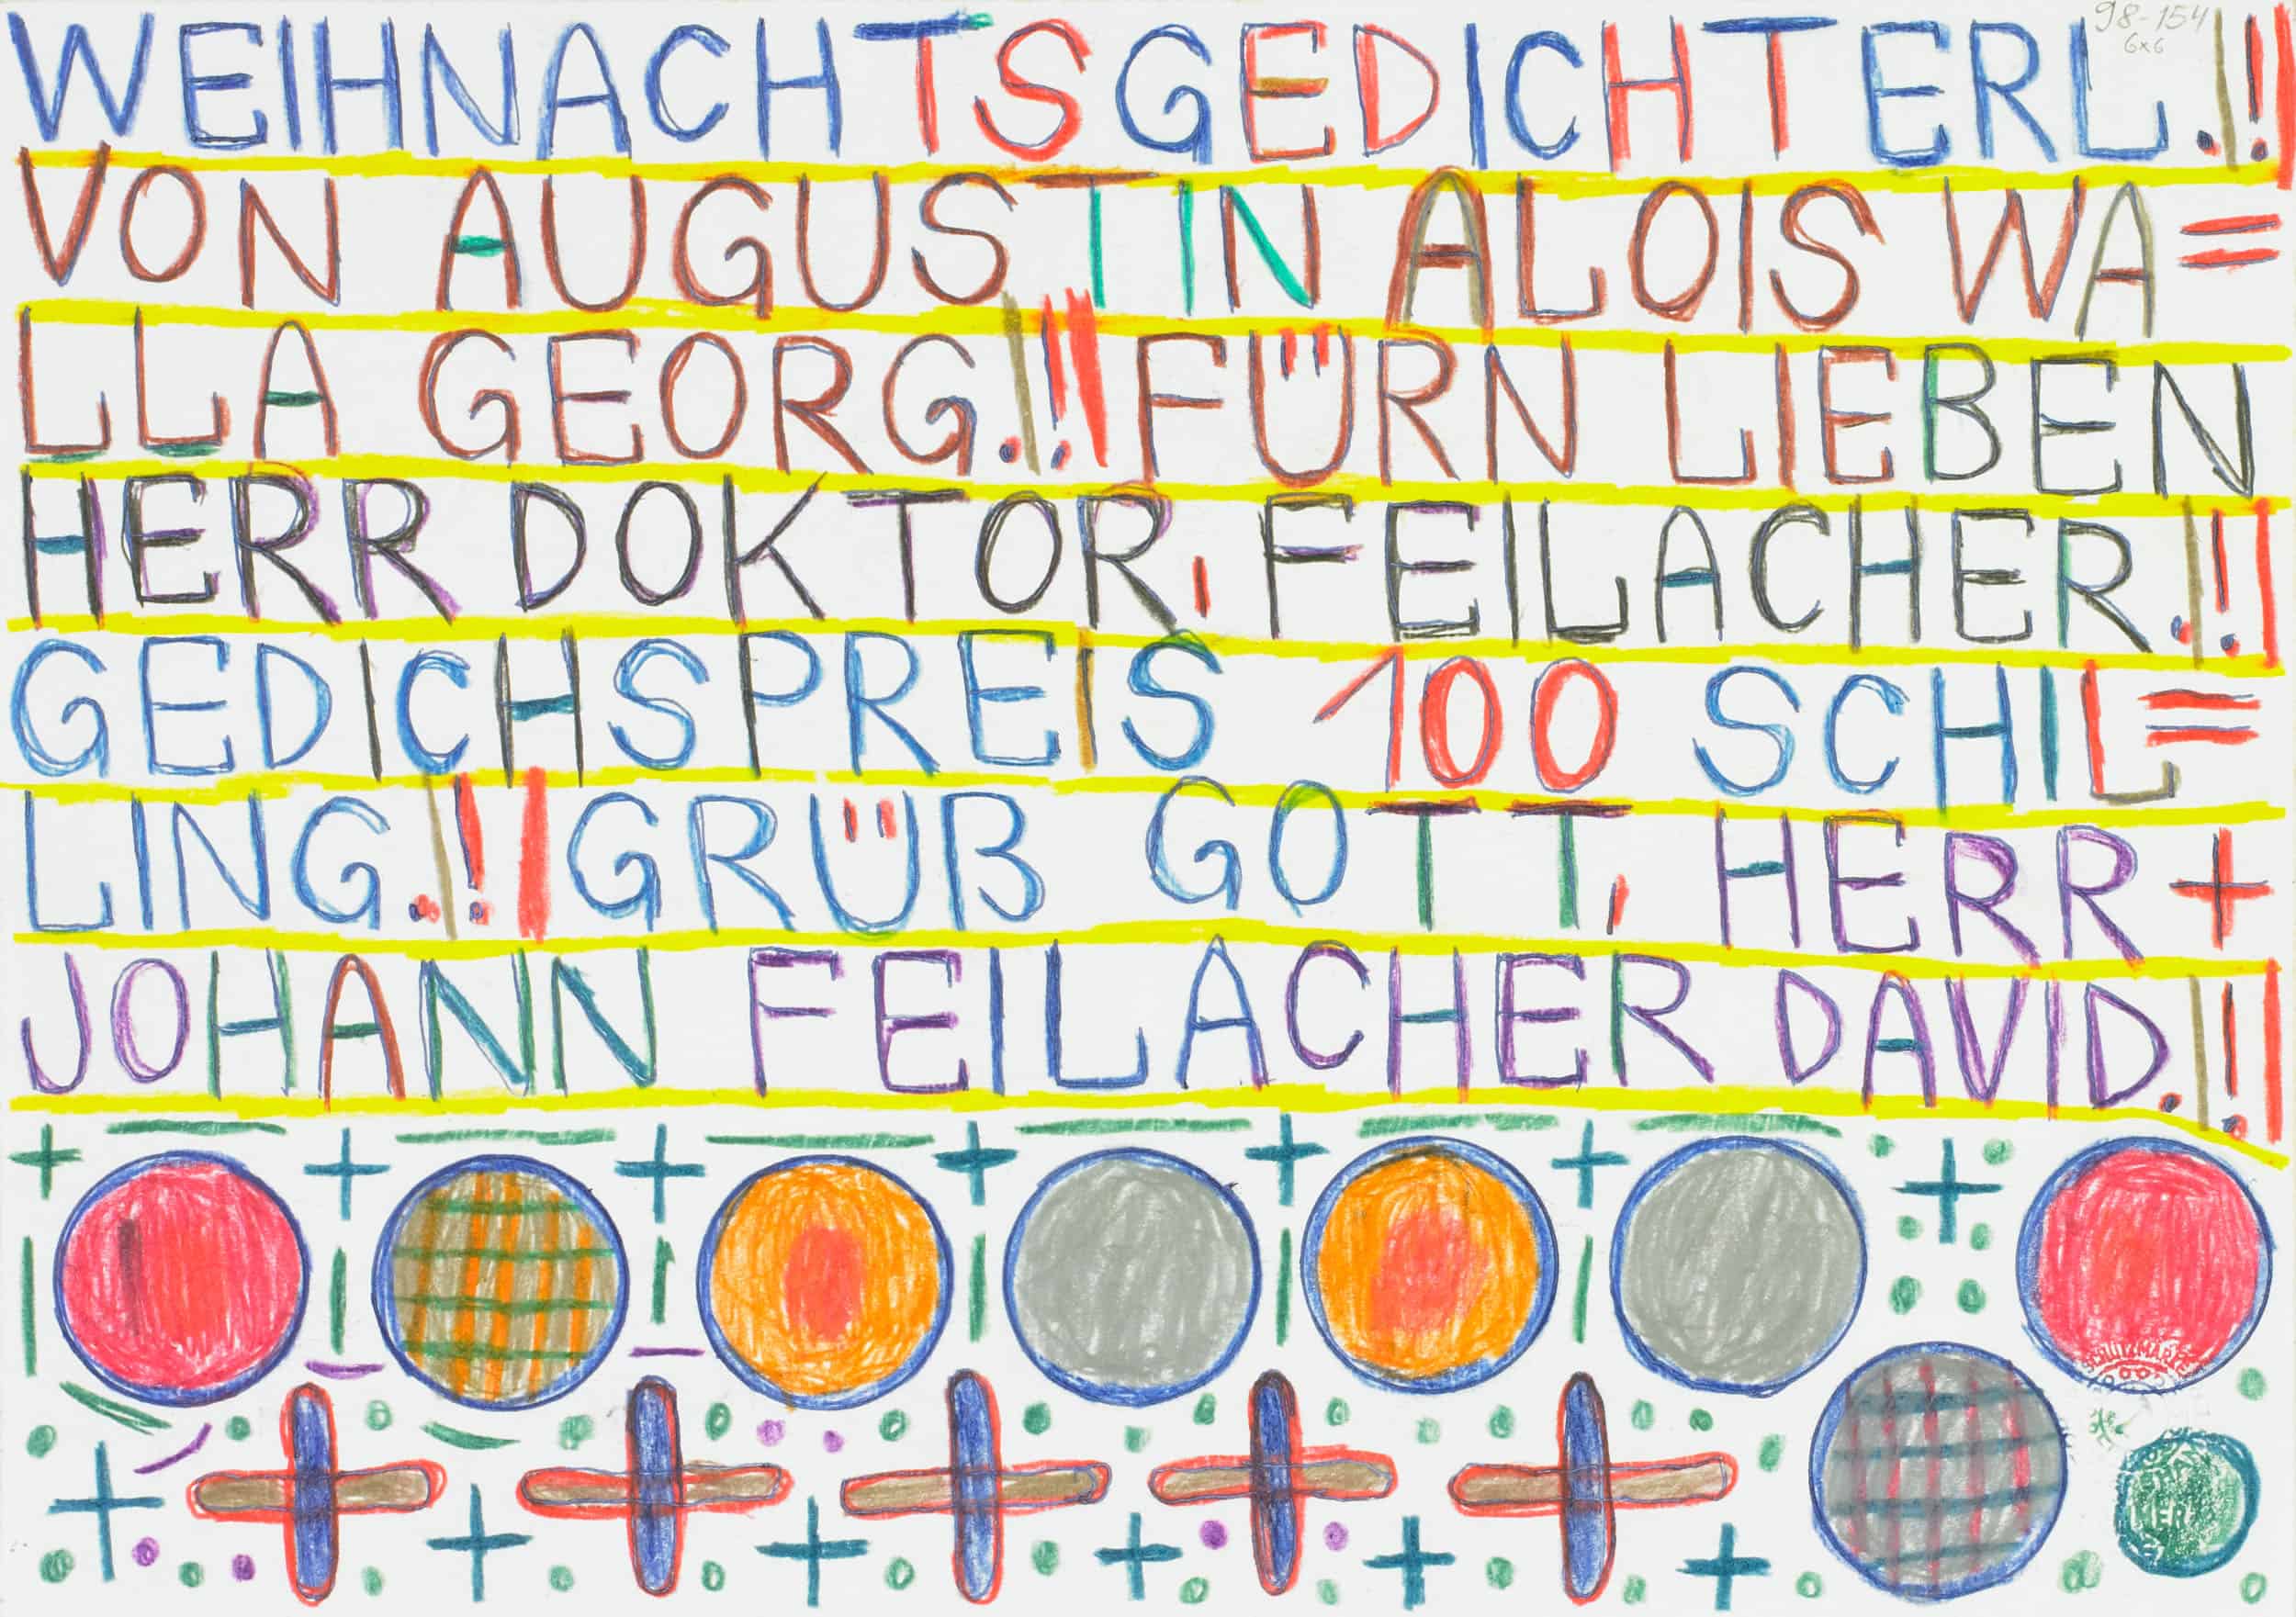 98-154
6x6
WEIHNACHTSGEDICHTERL.!!
VON AUGUSTIN ALOIS WA=
LLA GEORG.!! FÜRN LIEBEN
HERR DOKTOR, FEILACHER.!!
GEDICHSPREIS 100 SCHIL=
LING.!! GRÜß GOTT, HERR +
JOHANN FEILACHER DAVID.!!
SCHUTZMARKE